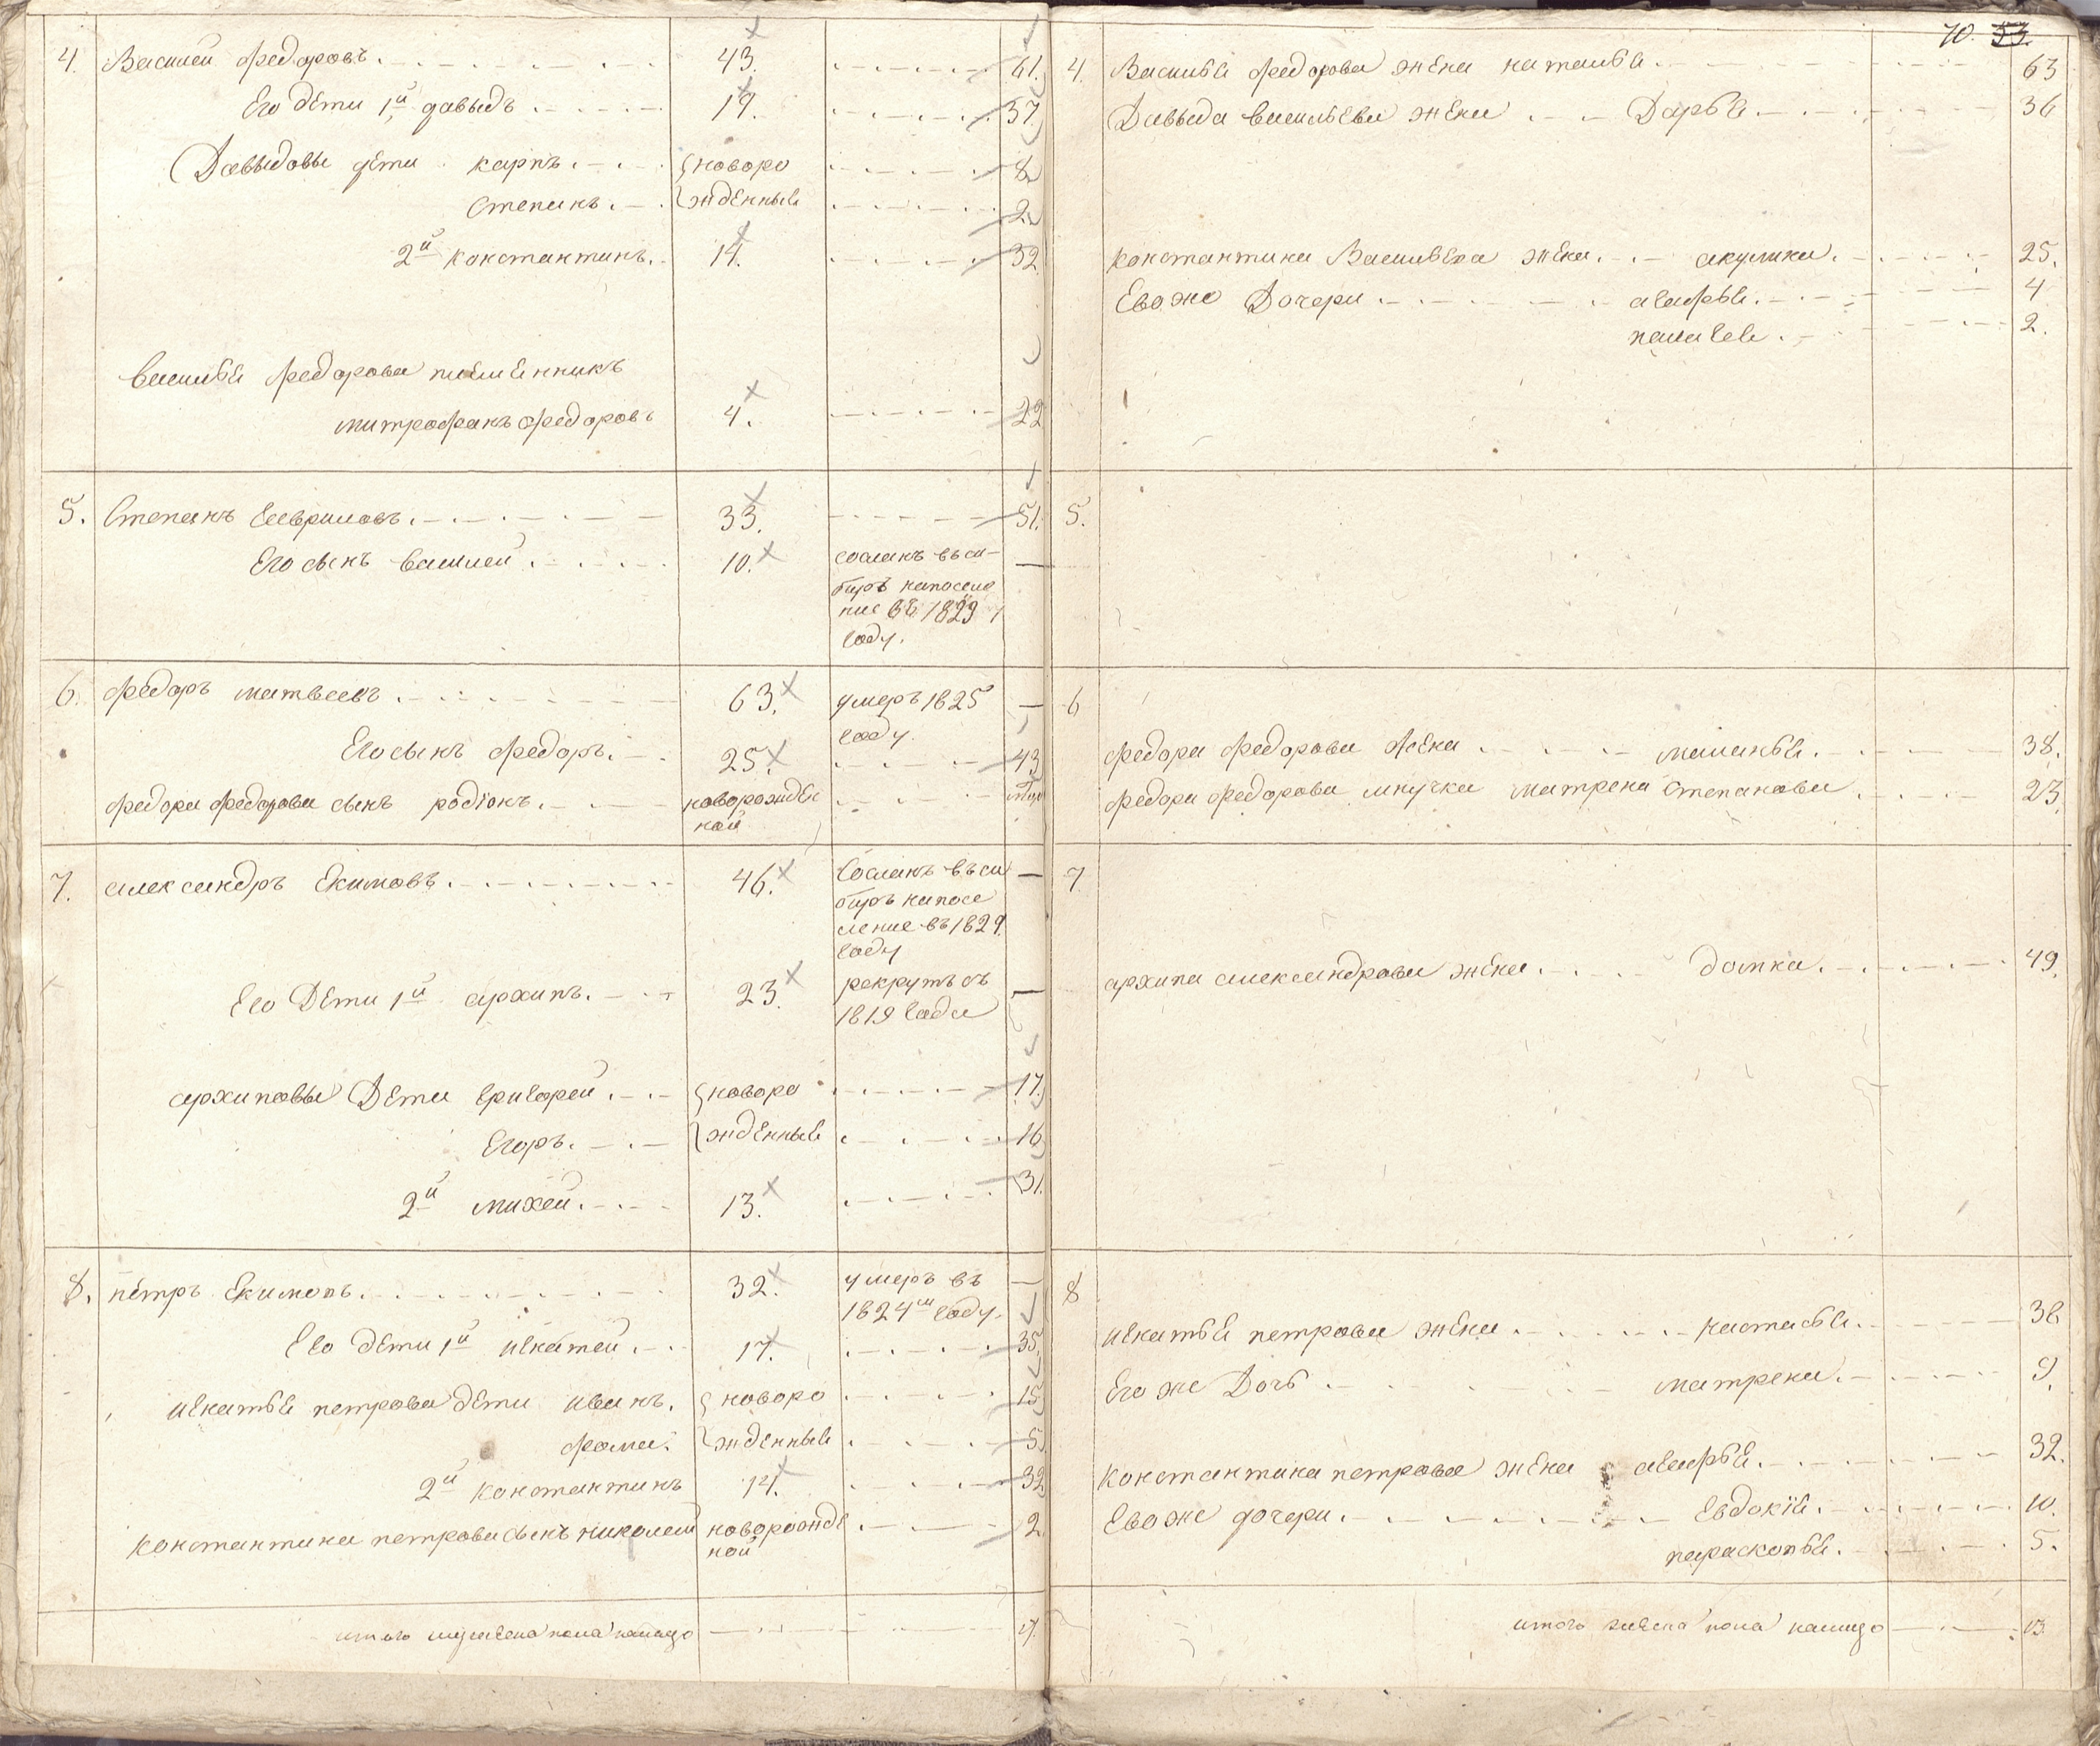 4. Василей Федоровъ 43. 61.
Его дети 1й давыдъ 19. 37.
Давыдовы дети карпъ новоро 8
Степанъ жденные 2
2й константинъ 14. 32
Василья Федорова племенникъ
митрофанъ Федоровъ 4. 22
5. Степанъ Гавриловъ 33. 51.
Его сынъ василей 10. сосланъ въ си-
бирь напоселе
ние въ 1829
году.
6. Федоръ матвеевъ 63. умеръ 1825
году.
Его сынъ Федоръ 25. 43
Федора Федорова сынъ родіонъ новорожде
ной
7. александръ Екимовъ 46. Сосланъ въ си
бирь напосе
ление въ 1829.
году
Его Дети 1й архипъ 23. рекрутъ съ
1819 года
архиповы Дети григорей новоро 17.
Егоръ жденные 16
2й михей 13. 31.
8. петръ Екимовъ 32. умеръ въ
1824м году.
Его дети 1й игнатей 17. 35.
игнатья петрова дети иванъ новоро 15
фома жденные 5
2й константинъ 14. 32
константина петрова сынъ николай новорожде 2
ной
итого мужеска пола налицо 17.
70. 53.
4. Василья Федорова жена наталья 63
Давыда васильева жена Дарья 36
константина Васильева жена акулина 25.
Его же Дочери агафья 4
пелагея 2.
5.
6
Федора Федорова жена маланья 38.
Федора Федорова внучка матрена Степанова 23.
7
архипа александрова жена домна 49.
8
игнатья петрова жена настасья 38
Его же Дочь матрена 9.
константина петрова жена агафья 32.
Его же дочери Евдокія 10.
парасковья 5.
итого женска пола налицо 13.